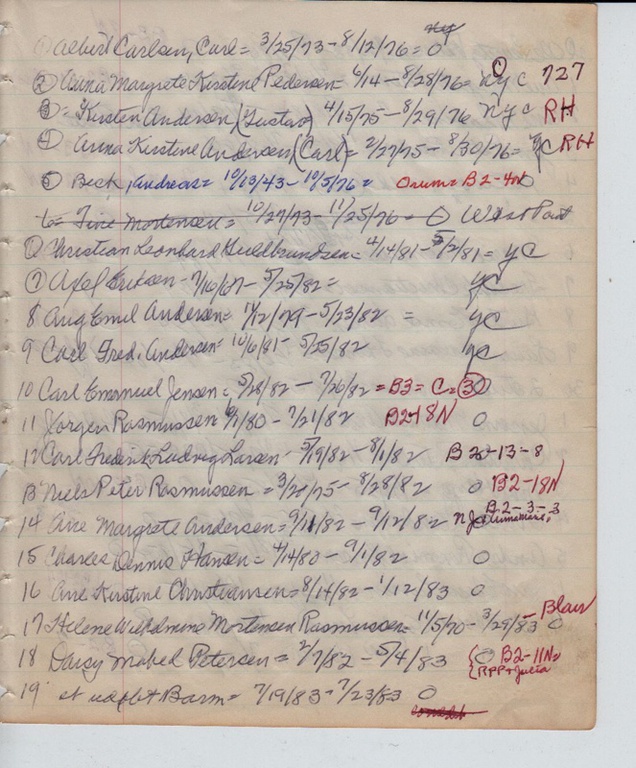 ① Albert Carlsen, Carl = 3/25/73 - 8/12/76 = 0
② Anna Margrete Kirstine Pedersen = 6/14 - 8/28/76 = nyc 727
③ = Kirsten Andersen (Gustav) 4/15/75 - 8/29/76 nyc RH
④ Anna Kirstine Andersen (Carl) = 2/27/75 - 8/30/76 = yc RH
⑤ Beck, Andreas = 10/13/43 - 10/5/76 = Orum = B2-4N 0
6 = Tine Mortensen = 10/27/73 - 11/25/76 = 0 West Part
Christian Leonhard Guldbrandsen = 4/14/81 - 5/2/81 = yc
⑦ Axel Eriksen - 7/16/67 - 5/25/82 = yc
8 Aug Emil Andersen = 11/12/79 - 5/23/82 = yc
9 Carl Fred. Andersen = 10/6/81 - 5/25/82 yc
10 Carl Emanuel Jensen = 5/28/82 - 7/26/82 = B3 = C = 30
11 Jorgen Rasmussen 9/1/80 - 7/21/82 B2-18N 0
12 Carl Frederik Ludvig Larsen - 5/19/82 - 8/1/82 B 2-13-8
13 Niels Peter Rasmussen = 3/28/75 - 8/28/82 0 B2-18N
14 Ane Margrete Andersen = 9/11/82 - 9/12/82 B-2-3-3
15 Charles Dennis Hansen = 4/14/80 - 9/1/82 0
16 Ane Kirstine Christiansen = 8/14/82 - 1/12/83 0
17 Helene Wilhelmine Mortensen Rasmussen = 11/5/70 - 3/29/83 - Blair 0
18 Daisy Mabel Petersen = 2/7/82 - 5/4/83 { 0 B2-11N
RPP + Julia
19 et udøbt Barn = 7/19/83 - 7/23/83 0